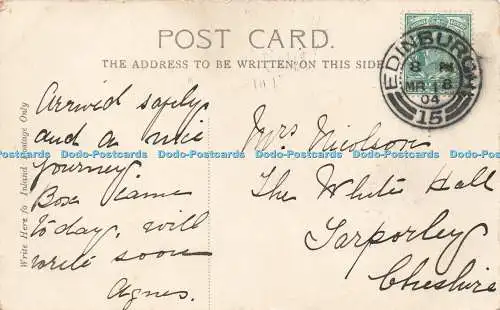 POST CARD.
THE ADDRESS TO BE WRITTEN ON THIS SIDE
Write Here for Inland Postage Only
Arrived safely
and a nice
journey.
Box came
to day. will
write soon
Agnes.
EDINBURGH
8 PM
MR 18
04
15
Mrs Nicolson
The White Hall
Tarporley
Cheshire
Dodo-Postcards Dodo-Postcards Dodo-Postcards Dodo-Postcards Dodo-Postcards Dodo-Postcards